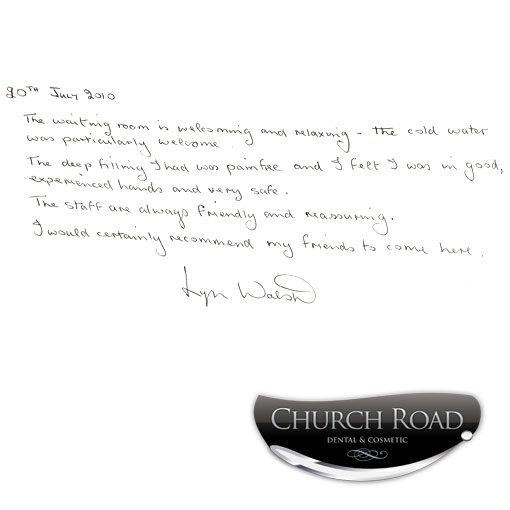 20TH July 2010
The waiting room is welcoming and relaxing - the cold water
was particularly welcome.
The deep filling I had was painfree and I felt I was in good,
experienced hands and very safe.
The staff are always friendly and reassuring.
I would certainly recommend my friends to come here.
Lyn Walsh
CHURCH ROAD
DENTAL & COSMETIC